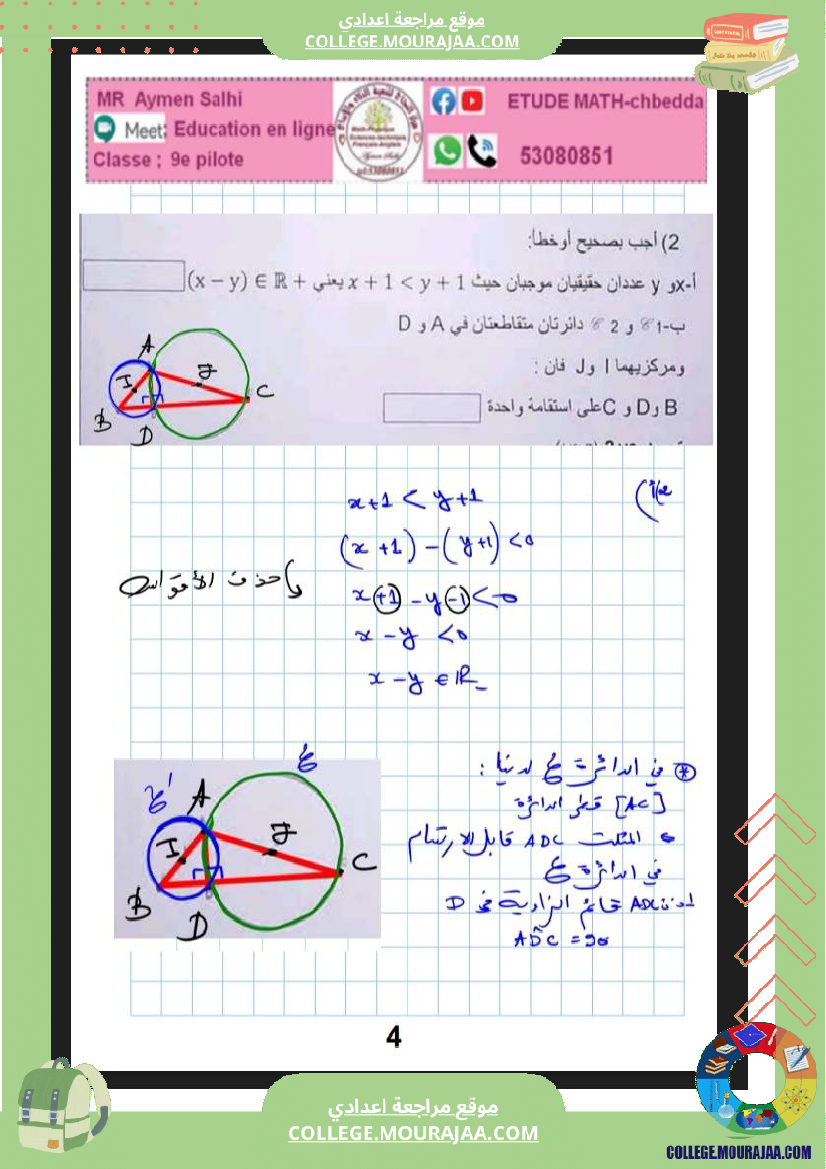 موقع مراجعة اعدادي
COLLEGE.MOURAJAA.COM
MR Aymen Salhi
Meet: Education en ligne
Classe ; 9e pilote
ETUDE MATH-chbedda
53080851
2) أجب بصحيح أو خطأ:
أ-xو y عددان حقيقيان موجبان حيث x + 1 < y + 1 يعني (x − y) ∈ ℝ +
ب-1𝒞 و 2 𝒞 دائرتان متقاطعتان في A و D
ومركزيهما I و J فان :
B وD و C على استقامة واحدة
A
I
J
C
B
D
x+1 < y+1
(x +1) − (y+1) <0
نحذف الأقواس
x +1 − y −1 < 0
x − y < 0
x − y ∈ ℝ_
* في الدائرة ع لدينا :
[AC] قطر الدائرة
المثلث ADC قابل للارتسام
في الدائرة ع
ADC قائم الزاوية في D
ADC = 90
ع
ع'
A
I
J
C
B
D
4
موقع مراجعة اعدادي
COLLEGE.MOURAJAA.COM
COLLEGE.MOURAJAA.COM